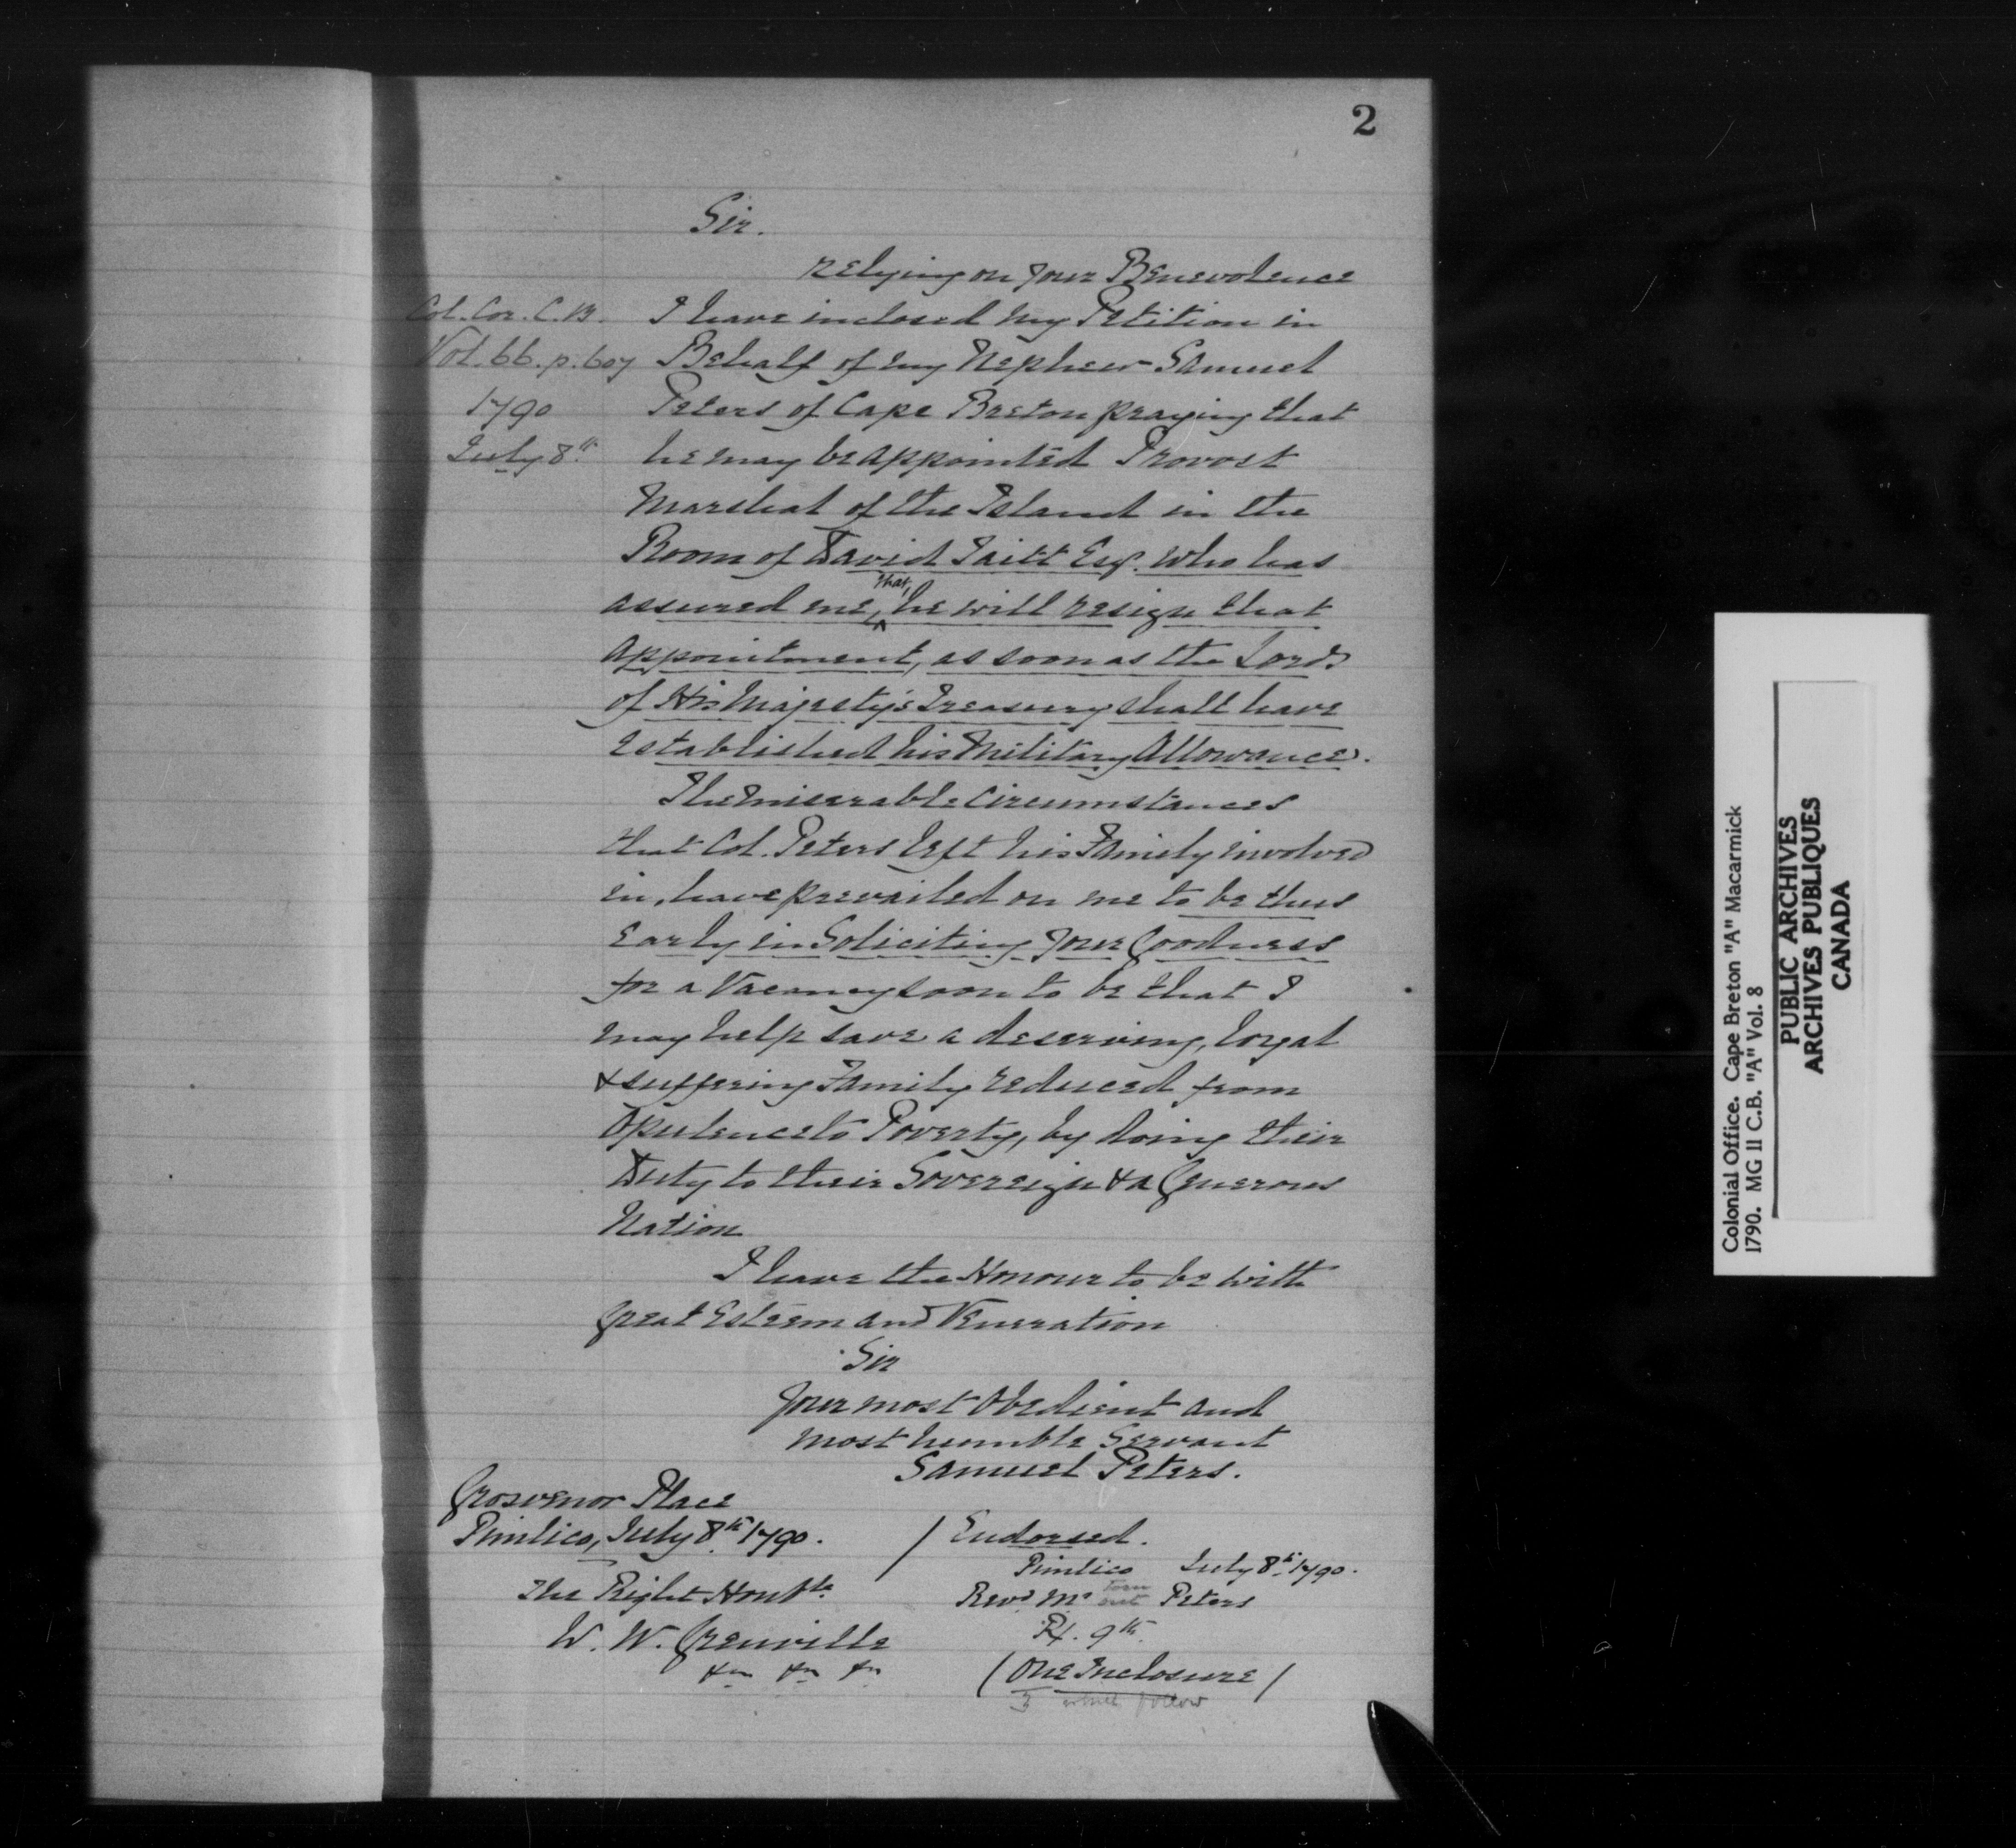 2
Sir.
relying on your Benevolence
Col. Cor. C. B. I have inclosed my Petition in
Vol. 66. p. 607 Behalf of my Nephew Samuel
1790 Peters of Cape Breton praying that
July 8th he may be appointed Provost
Marshal of the Island in the
Room of David Taitt Esqr. who has
assured me, that, he will resign that
appointment, as soon as the Lords
of His Majesty's Treasury shall have
established his Military Allowance.
The miserable Circumstances
that Col. Peters left his Family involved
in, have prevailed on me to be thus
early in Soliciting your Goodness
for a Vacancy soon to be that I
may help save a deserving, loyal
& suffering Family reduced from
Opulence to Poverty, by doing their
Duty to their Sovereign & a Generous
Nation
I have the Honour to be with
great Esteem and Veneration
Sir
Your most Obedient and
most humble Servant
Samuel Peters.
Grosvenor Place
Pimlico, July 8th 1790.
The Right Honble
W. W. Grenville
&c &c &c
/ Endorsed.
Pimlico July 8th 1790.
Revd Mr torn out Peters
Rx. 9th
(One Inclosure)
which follow
Colonial Office. Cape Breton "A" Macarmick
1790. MG 11 C.B. "A" Vol. 8
PUBLIC ARCHIVES
ARCHIVES PUBLIQUES
CANADA